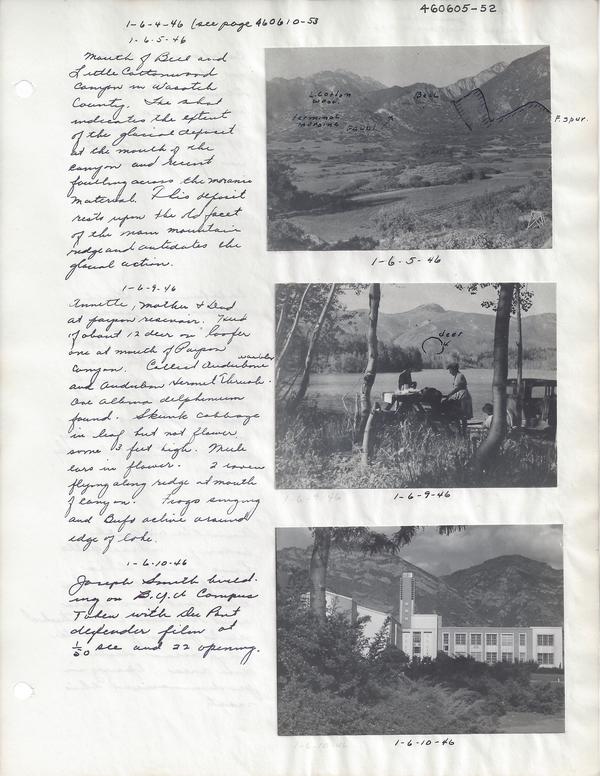 460605-52
1-6-4-46 (see page 460610-53
1-6-5-46
Mouth of Bell and
Little Cottonwood
Canyon in Wasatch
County. The shot
indicates the extent
of the glacial deposit
at the mouth of the
canyon and recent
faulting across the morainic
material. This deposit
rests upon the to facet
of the main mountain
ridge and antidates the
glacial action.
L. Cotton
wood.
Bell
terminal
moraine
Fault
F. spur.
1-6-5-46
1-6-9-46
Annette, Mother + Dead
at payson reservoir. Herd
of about 12 deer on loafer
one at mouth of Payson
Canyon. Collected Audubone warbler
and Audubon Hermet Thrush.
One albino delphinium
found. Skunk cabbage
in leaf but not flower
some 3 feet high. Mule
ears in flower. 2 raven
flying along ridge at mouth
of canyon. Frogs singing
and Bufo active around
edge of lake.
deer
1-6-9-46
1-6-9-46
1-6-10-46
Joseph Smith build-
ing on B.Y.U Campus
Taken with Du Pont
defender film at
1/50 sec and 22 opening.
1-6-10-46
1-6-10-46